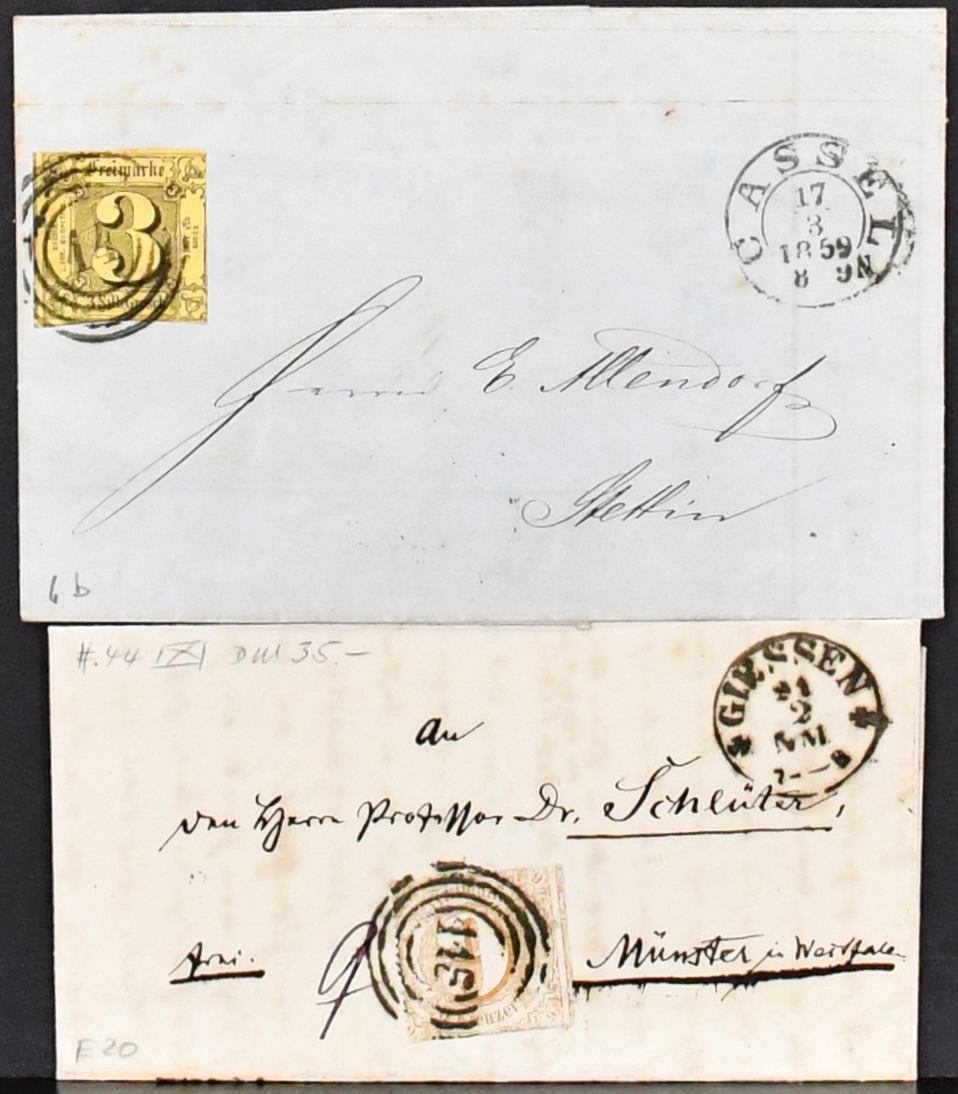 Freimarke
3
CASSEL
17
3
1859
8 9N
Herrn E. Allendorf
Stettin
6 b
#.44 DM 35.-
GIESSEN
21
2
NM
7-8
An
den Herrn Professor Dr. Schlüter,
frei.
9
Münster in Westfalen
118
Kreuzer
E20